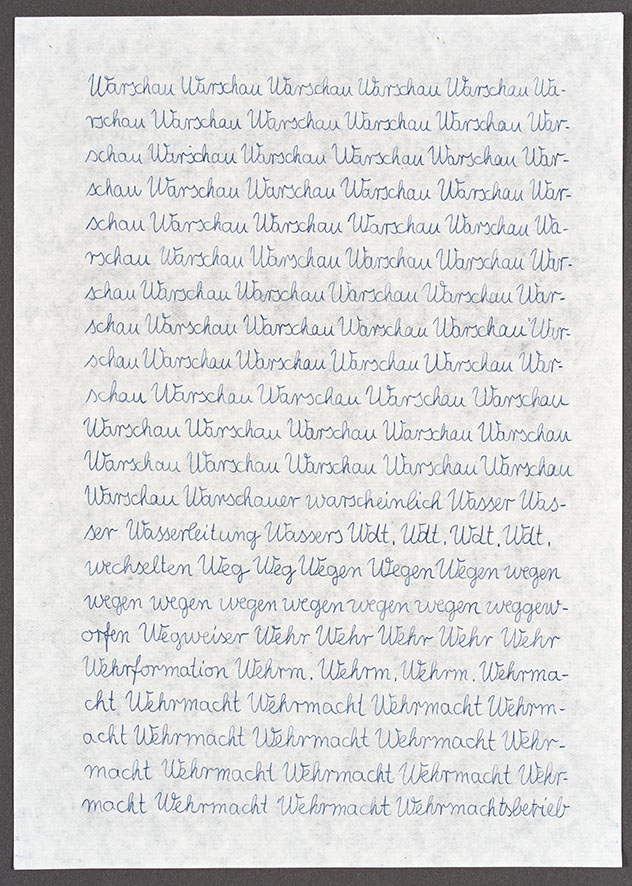 Warschau Warschau Warschau Warschau Warschau Wa-
rschau Warschau Warschau Warschau Warschau War-
schau Warschau Warschau Warschau Warschau War-
schau Warschau Warschau Warschau Warschau War-
schau Warschau Warschau Warschau Warschau Wa-
rschau Warschau Warschau Warschau Warschau War-
schau Warschau Warschau Warschau Warschau War-
schau Warschau Warschau Warschau Warschau War-
schau Warschau Warschau Warschau Warschau War-
schau Warschau Warschau Warschau Warschau
Warschau Warschau Warschau Warschau Warschau
Warschau Warschau Warschau Warschau Warschau
Warschau Warschauer warscheinlich Wasser Was-
ser Wasserleitung Wassers Wdt. Wdt. Wdt. Wdt.
wechselten Weg Weg Wegen Wegen Wegen wegen
wegen wegen wegen wegen wegen wegen weggew-
orfen Wegweiser Wehr Wehr Wehr Wehr Wehr
Wehrformation Wehrm. Wehrm. Wehrm. Wehrma-
cht Wehrmacht Wehrmacht Wehrmacht Wehrm-
acht Wehrmacht Wehrmacht Wehrmacht Wehr-
macht Wehrmacht Wehrmacht Wehrmacht Wehr-
macht Wehrmacht Wehrmacht Wehrmachtsbetrieb